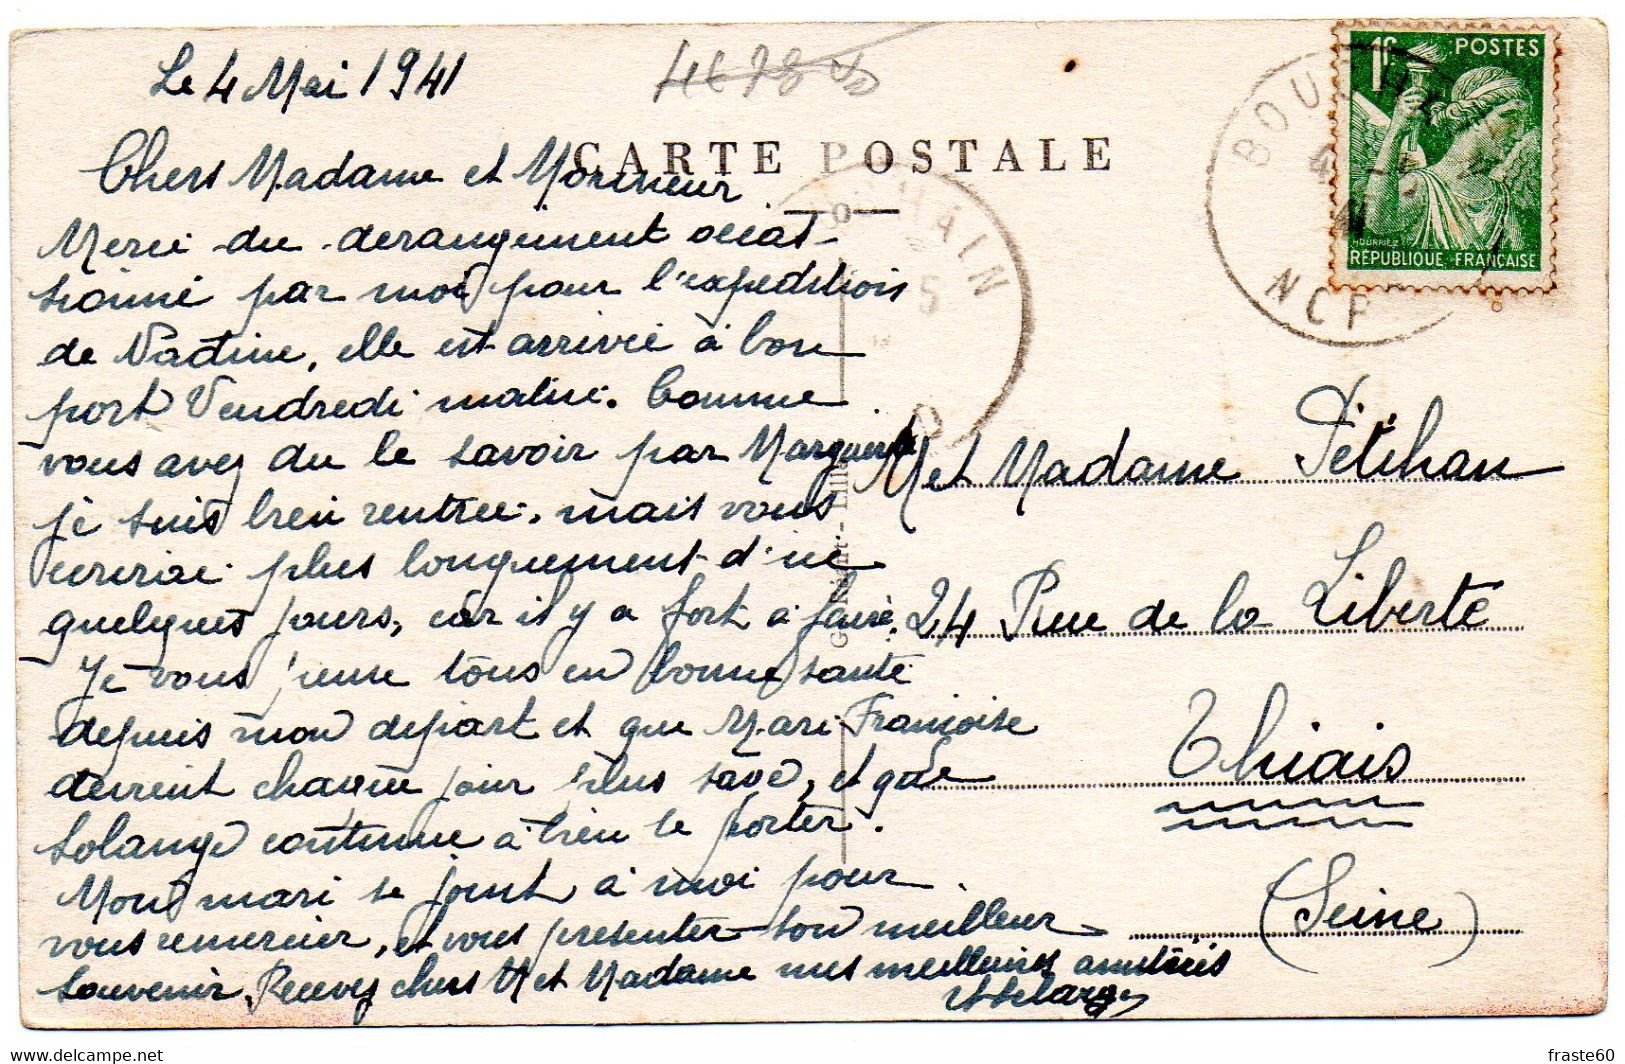 Le 4 Mai 1941
CARTE POSTALE
Chers Madame et Monsieur
Merci du derangement occas-
sionné par moi pour l'expedition
de Nadine, elle est arrivée à bon
port Vendredi matin. Comme
vous avez du le savoir par Marguerite
je suis bien rentrée. mais vous
écrirai plus longuement d'ici
quelques jours, car il y a fort à faire.
Je vous pense tous en bonne santé
depuis mon depart et que Mari Françoise
devient chaque jour plus sage, et que
Solange continue à bien se porter.
Mon mari se joint à moi pour
vous remercier, et vous presenter son meilleur
souvenir. Recevez chers M et Madame mes meilleures amitiés
M et Madame Pétihan
24 Rue de la Liberté
Thiais
(Seine)
1F POSTES
RÉPUBLIQUE FRANÇAISE
BOU
NCF
HAIN
5
fraste60